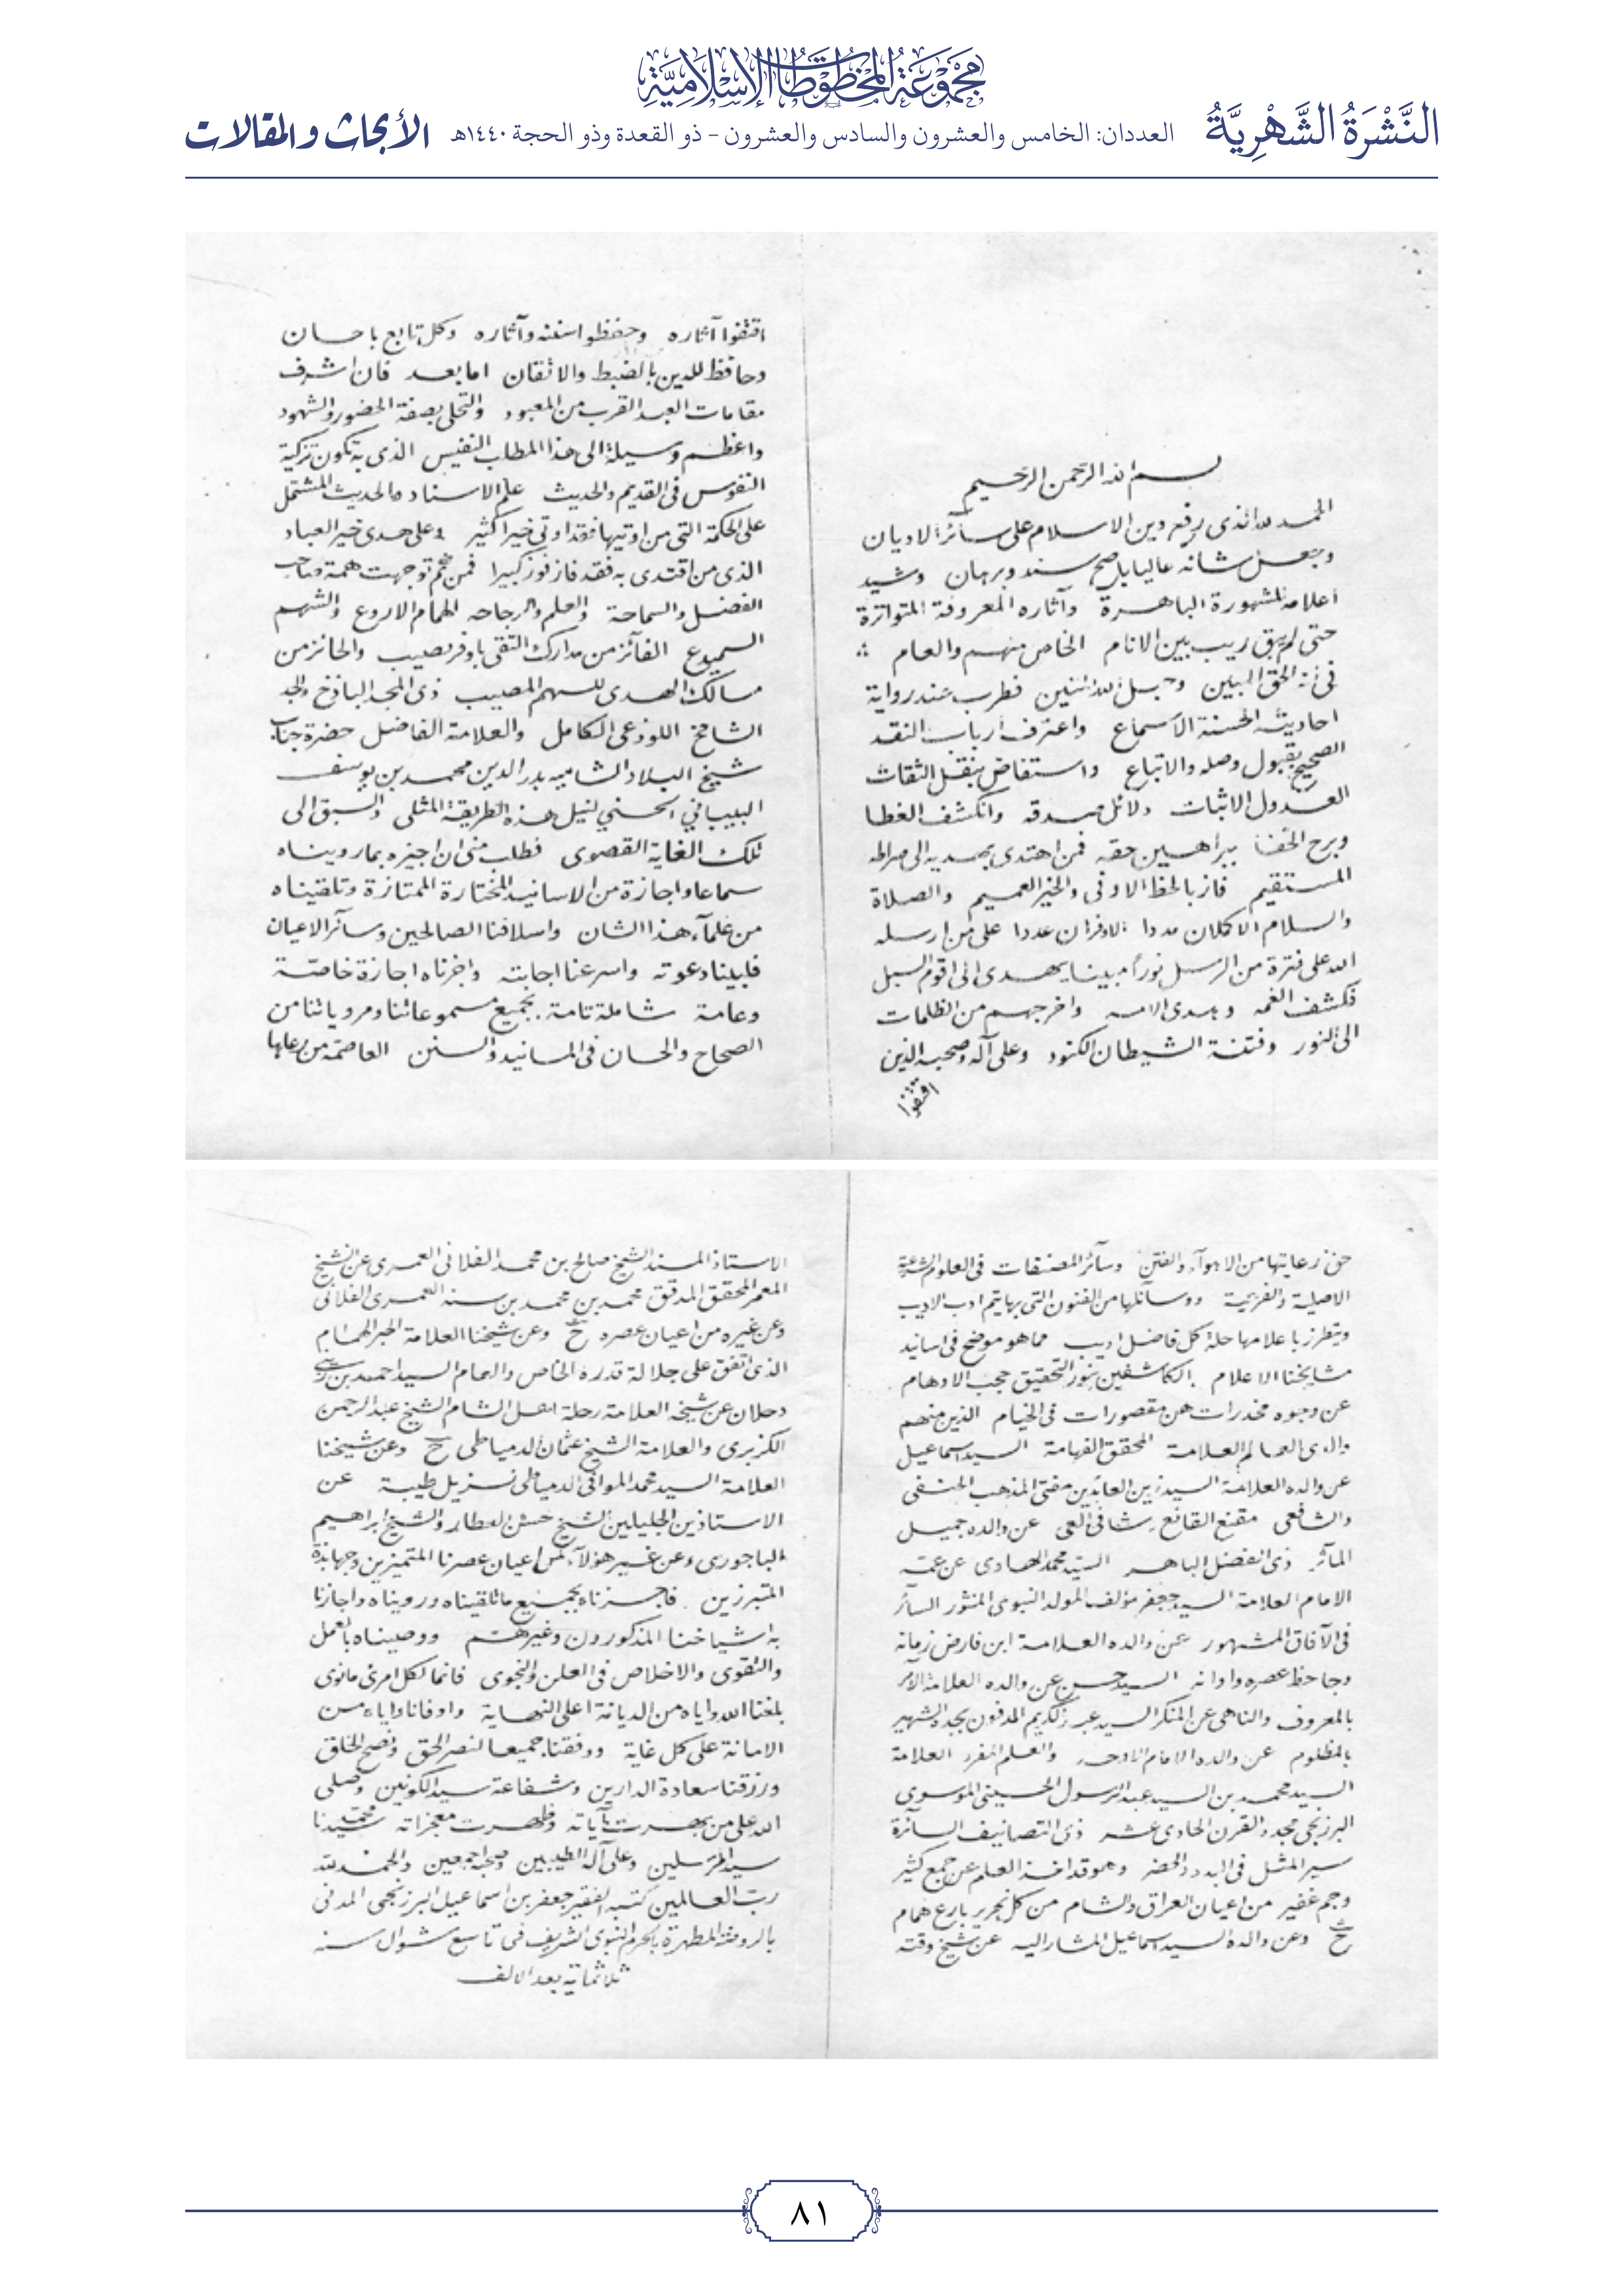 مجموعة المخطوطات الإسلامية
النَّشْرَةُ الشَّهْرِيَّةُ
العددان: الخامس والعشرون والسادس والعشرون – ذو القعدة وذو الحجة ١٤٤٠هـ
الأبحاث والمقالات
بسم الله الرحمن الرحيم
الحمد لله الذى رفع دين الاسلام على سائر الاديان
وجعل شانه عاليا باصح سند وبرهان وشيد
اعلامه المشهورة الباهرة وآثاره المعروفة المتواترة
حتى لم يبق ريب بين الانام الخاص منهم والعام
فى انه الحق المبين وحبل الله المتين فطرب عند رواية
احاديثه الحسنة الاسماع واعترف ارباب النقد
الصحيح بقبول وصله والاتباع واستفاض بنقل الثقات
العدول الاثبات دلائل صدقه وانكشف الغطا
وبرح الخفا ببراهين حقه فمن اهتدى بهديه الى صراطه
المستقيم فاز بالحظ الاوفى والخير العميم والصلاة
والسلام الاكملان مددا الاوفران عددا على من ارسله
الله على فترة من الرسل نوراً مبينا يهدى الى اقوم السبل
فكشف الغمه وهدى الامه واخرجهم من الظلمات
الى النور وفتنة الشيطان الكنود وعلى آله وصحبه الذين
اقتفوا
اقتفوا آثاره وحفظوا سننه وآثاره وكل تابع باحسان
وحافظ للدين بالضبط والاتقان اما بعد فان اشرف
مقامات العبد القرب من المعبود والتحلى بصفة الحضور والشهود
واعظم وسيلة الى هذا المطلب النفيس الذى به تكون تزكية
النفوس فى القديم والحديث علم الاسناد والحديث المشتمل
على الحكمة التى من اوتيها فقد اوتي خيرا كثير وعلى هدى خير العباد
الذى من اقتدى به فقد فاز فوز كبيرا فمن ثم توجهت همة صاحب
الفضل والسماحة والعلم والرجاحه الهمام الاروع والشهم
السميدع الفائز من مدارك التقى باوفر نصيب والحائز من
مسالك الهدى للسهم المصيب ذى المجد الباذخ والجد
الشامخ اللوذعى الكامل والعلامة الفاضل حضرة جناب
شيخ البلاد الشاميه بدر الدين محمد بن يوسف
البيباني الحسني لنيل هذه الطريقة المثلى والسبق الى
تلك الغاية القصوى فطلب منى ان اجيزه بما رويناه
سماعا واجازة من الاسانيد المختارة الممتازة وتلقيناه
من علمآء هذا الشان واسلافنا الصالحين وسآئر الاعيان
فلبينا دعوته واسرعنا اجابته واجزناه اجازة خاصّة
وعامة شاملة تامة بجميع مسموعاتنا ومروياتنا من
الصحاح والحسان فى المسانيد والسنن العاصمة من رعاها
حق رعايتها من الاهوآء والفتن وسآئر المصنفات فى العلوم الشرعية
الاصلية والفرعية ووسائلها من الفنون التى بها يتم ادب الاديب
ويتطرز باعلامها حلة كل فاضل اديب مما هو موضح فى اسانيد
مشايخنا الاعلام الكاشفين بنور التحقيق حجب الاوهام
عن وجوه مخدرات هن مقصورات فى الخيام الذين منهم
والدى العالم العلامة المحقق الفهامة السيد اسماعيل
عن والده العلامة السيد زين العابدين مفتى المذهب الحنفى
والشافعى مقنع القانع شافى العى عن والده جميل
المآثر ذى الفضل الباهر السيد محمد الهادى عن عمه
الامام العلامة السيد جعفر مؤلف المولد النبوى المنثور السائر
فى الآفاق المشهور عن والده العلامة ابن فارض زمانه
وجاحظ عصره واوانه السيد حسن عن والده العلامة الآمر
بالمعروف والناهى عن المنكر السيد عبد الكريم المدفون بجدة الشهير
بالمظلوم عن والده الامام الاوحد والعلم المفرد العلامة
السيد محمد بن السيد عبد الرسول الحسينى الموسوى
البرزنجى مجدد القرن الحادى عشر ذى التصانيف السآئرة
سير المثل فى البدو والحضر وهو قد اخذ العلم عن جمع كثير
وجم غفير من اعيان العراق والشام من كل نحرير بارع همام
ح وعن والده السيد اسماعيل المشار اليه عن شيخ وقته
الاستاذ المسند الشيخ صالح بن محمد الفلانى العمرى عن الشيخ
المعمر المحقق المدقق محمد بن محمد بن سنه العمرى الفلانى
وعن غيره من اعيان عصره ح وعن شيخنا العلامة الحبر الهمام
الذى اتفق على جلالة قدره الخاص والعام السيد احمد بن زينى
دحلان عن شيخه العلامة رحلة اهل الشام الشيخ عبد الرحمن
الكزبرى والعلامة الشيخ عثمان الدمياطى ح وعن شيخنا
العلامة السيد محمد الموافى الدمياطى نزيل طيبة عن
الاستاذين الجليلين الشيخ حسن العطار والشيخ ابراهيم
الباجورى وعن غير هؤلآء من اعيان عصرنا المتميزين وجهابذة
المتبرزين فاجزناه بجميع ما تلقيناه ورويناه واجازنا
به اشياخنا المذكورون وغيرهم ووصيناه بالعمل
والتقوى والاخلاص فى العلن والنجوى فانما لكل امرئ ما نوى
بلغنا الله واياه من الديانة اعلى النهاية واوفانا واياه من
الامانة على كل غاية ووفقنا جميعا لنصر الحق ونصح الخلق
ورزقنا سعادة الدارين وشفاعة سيد الكونين وصلى
الله على من بهرت آياته وظهرت معجزاته سيدنا محمد
سيد المرسلين وعلى آله الطيبين وصحبه اجمعين والحمد لله
ربّ العالمين كتبه الفقير جعفر بن اسماعيل البرزنجى المدنى
بالروضة المطهرة بالحرم النبوى الشريف فى تاسع شوال سنه
ثلاثمائة بعد الالف
٨١